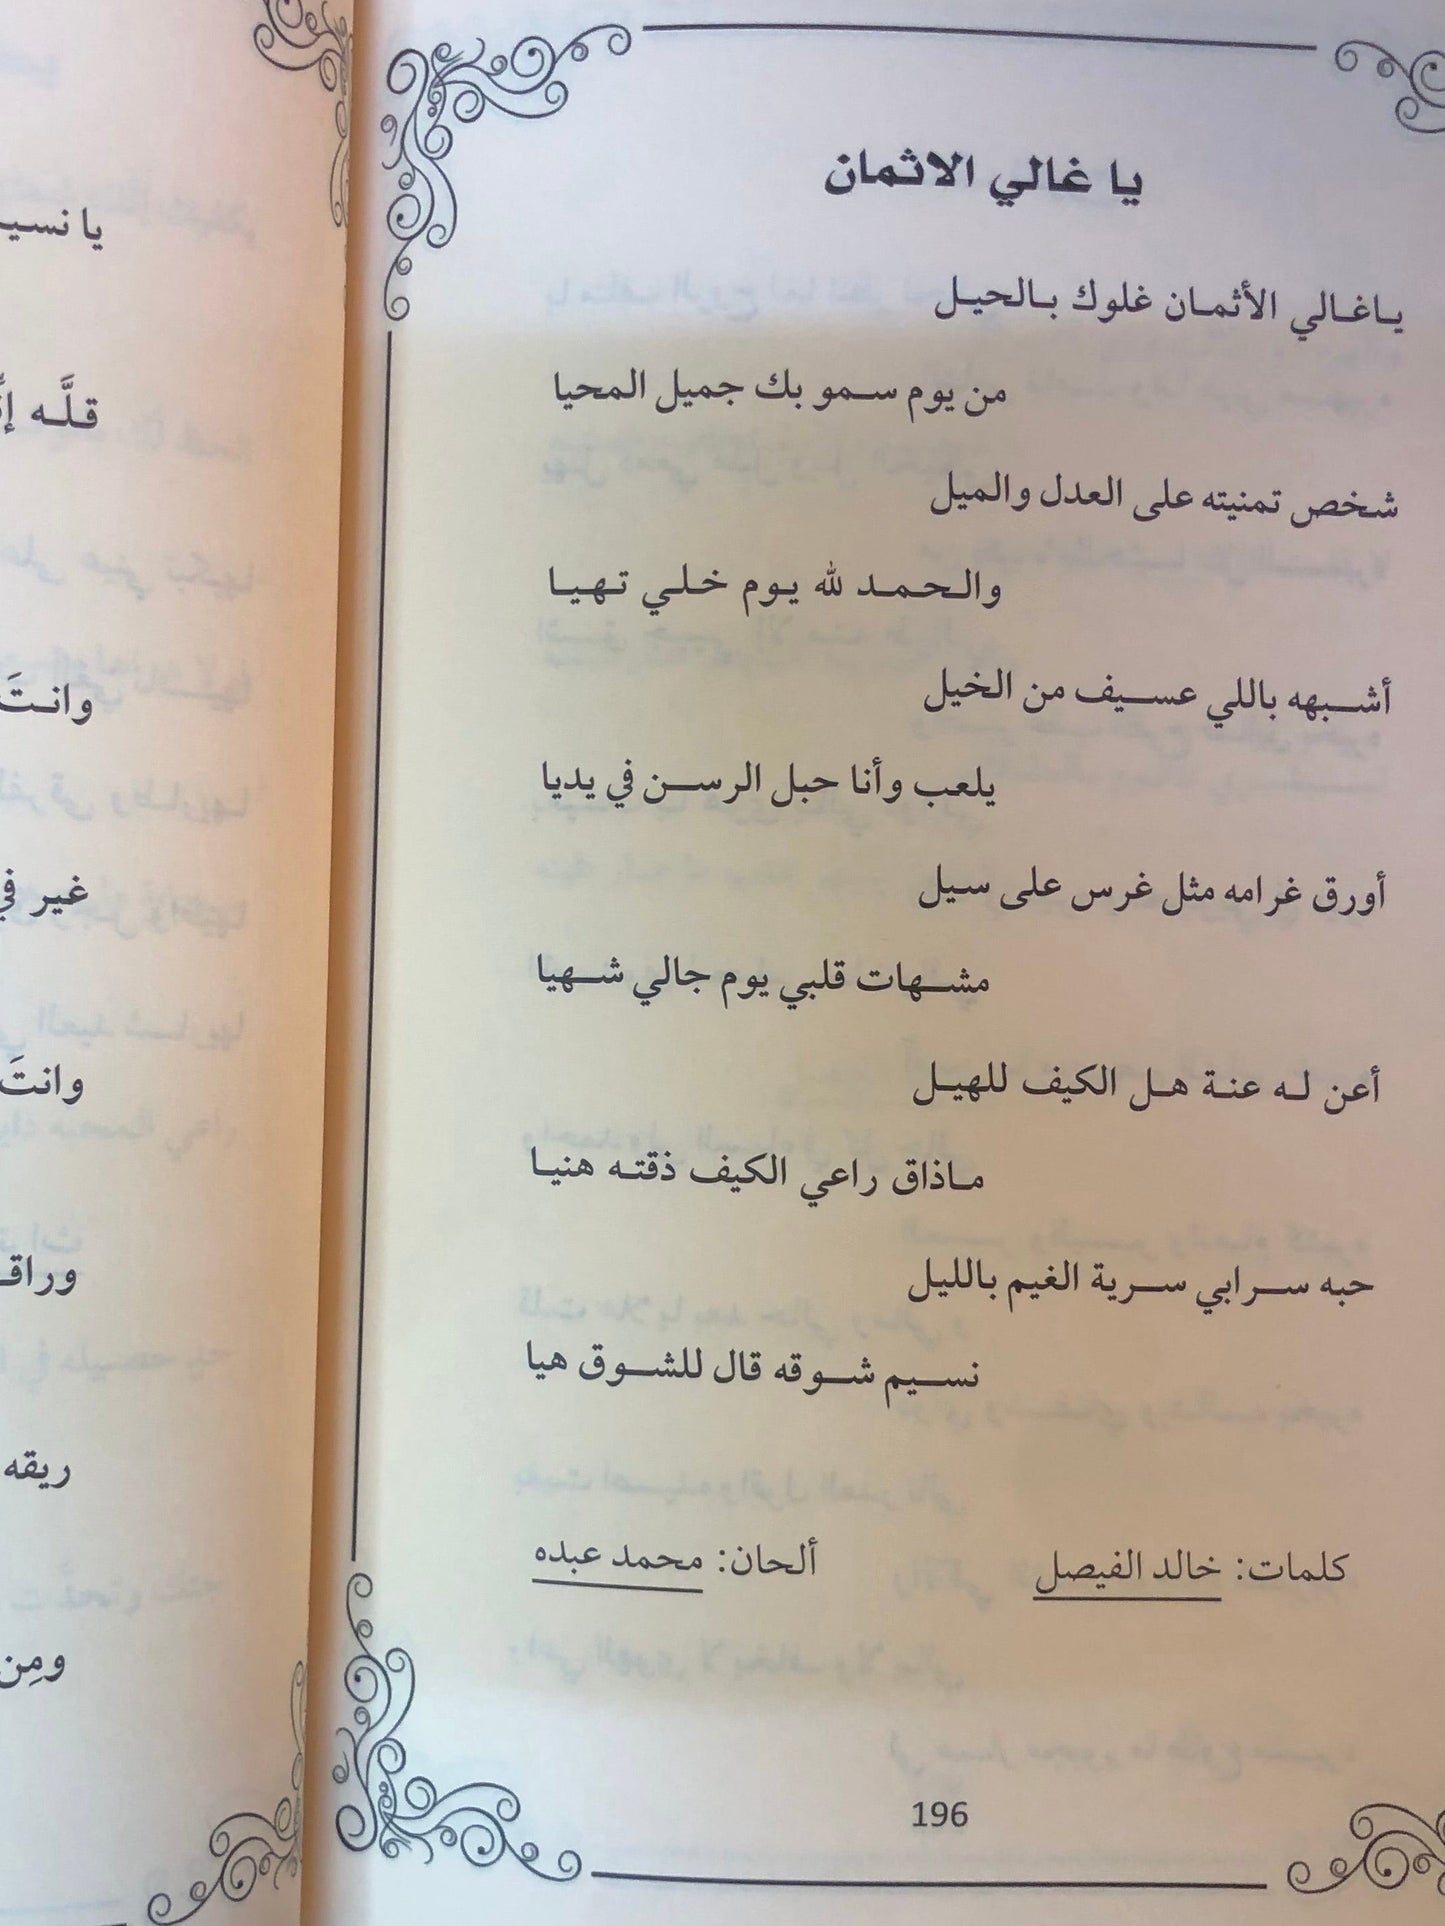 يا غالي الاثمان
ياغالي الأثمان غلوك بالحيل
من يوم سمو بك جميل المحيا
شخص تمنيته على العدل والميل
والحمد لله يوم خلي تهيا
أشبهه باللي عسيف من الخيل
يلعب وأنا حبل الرسن في يديا
أورق غرامه مثل غرس على سيل
مشهات قلبي يوم جالي شهيا
أعن له عنة هل الكيف للهيل
ماذاق راعي الكيف ذقته هنيا
حبه سرابي سرية الغيم بالليل
نسيم شوقه قال للشوق هيا
كلمات: خالد الفيصل ألحان: محمد عبده
196
يا نسيـ
قلَّه
وانتَ
غير في
وانتَ
وراقـ
ريقه
ومِن